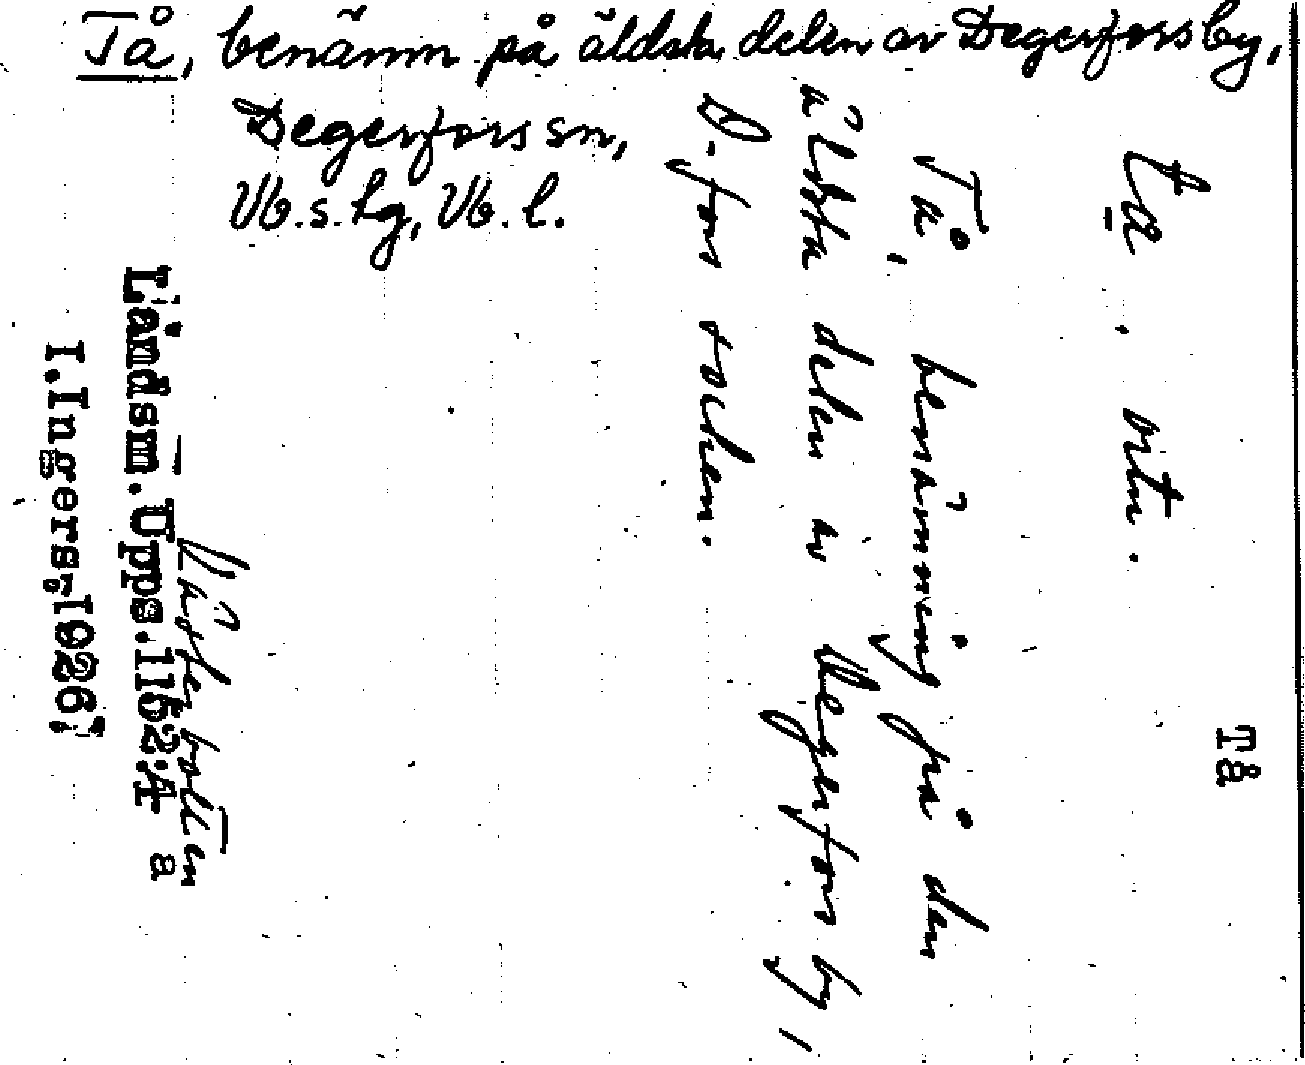 Tå, benämn på äldsta delen av Degerfors by,
Degerfors sn,
Vb.s. lg, Vb. l.
Tå
tå. ortn.
Tå, benämning på den
äldsta delen av Degerfors by,
D-fors socken.
Västerbotten
Landsm. Upps. 1152:A a
I. Ingers, 1926;